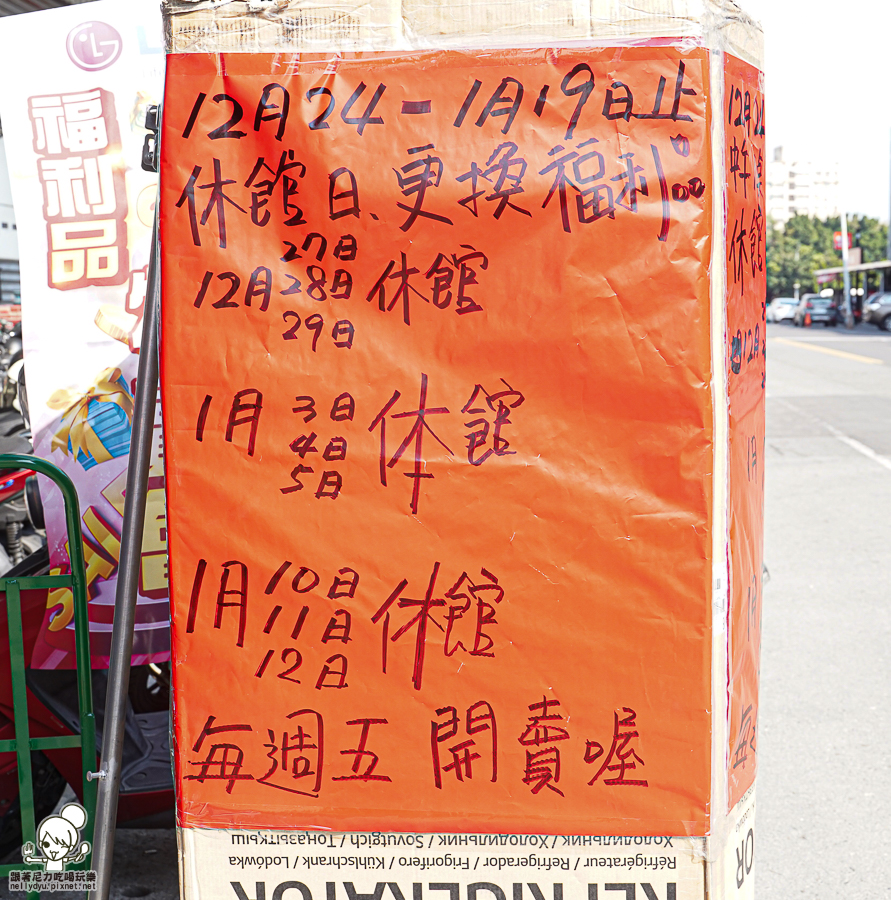 12月24-1月19日止
休館日、更換福利品
27日
12月28日休館
29日
1月3日休館
4日
5日
1月10日休館
11日
12日
每週五 開賣喔
LG
福利品
12月24
中午
休館
12月
1月
1月
每
Холодильник / Холодильник / Тоңазытқыш
Réfrigérateur / Refrigerador / Frigorífero / Kühlschrank / Lodówka
REFRIGERATOR
OR
跟著尼力吃喝玩樂
nellydyu.pixnet.net